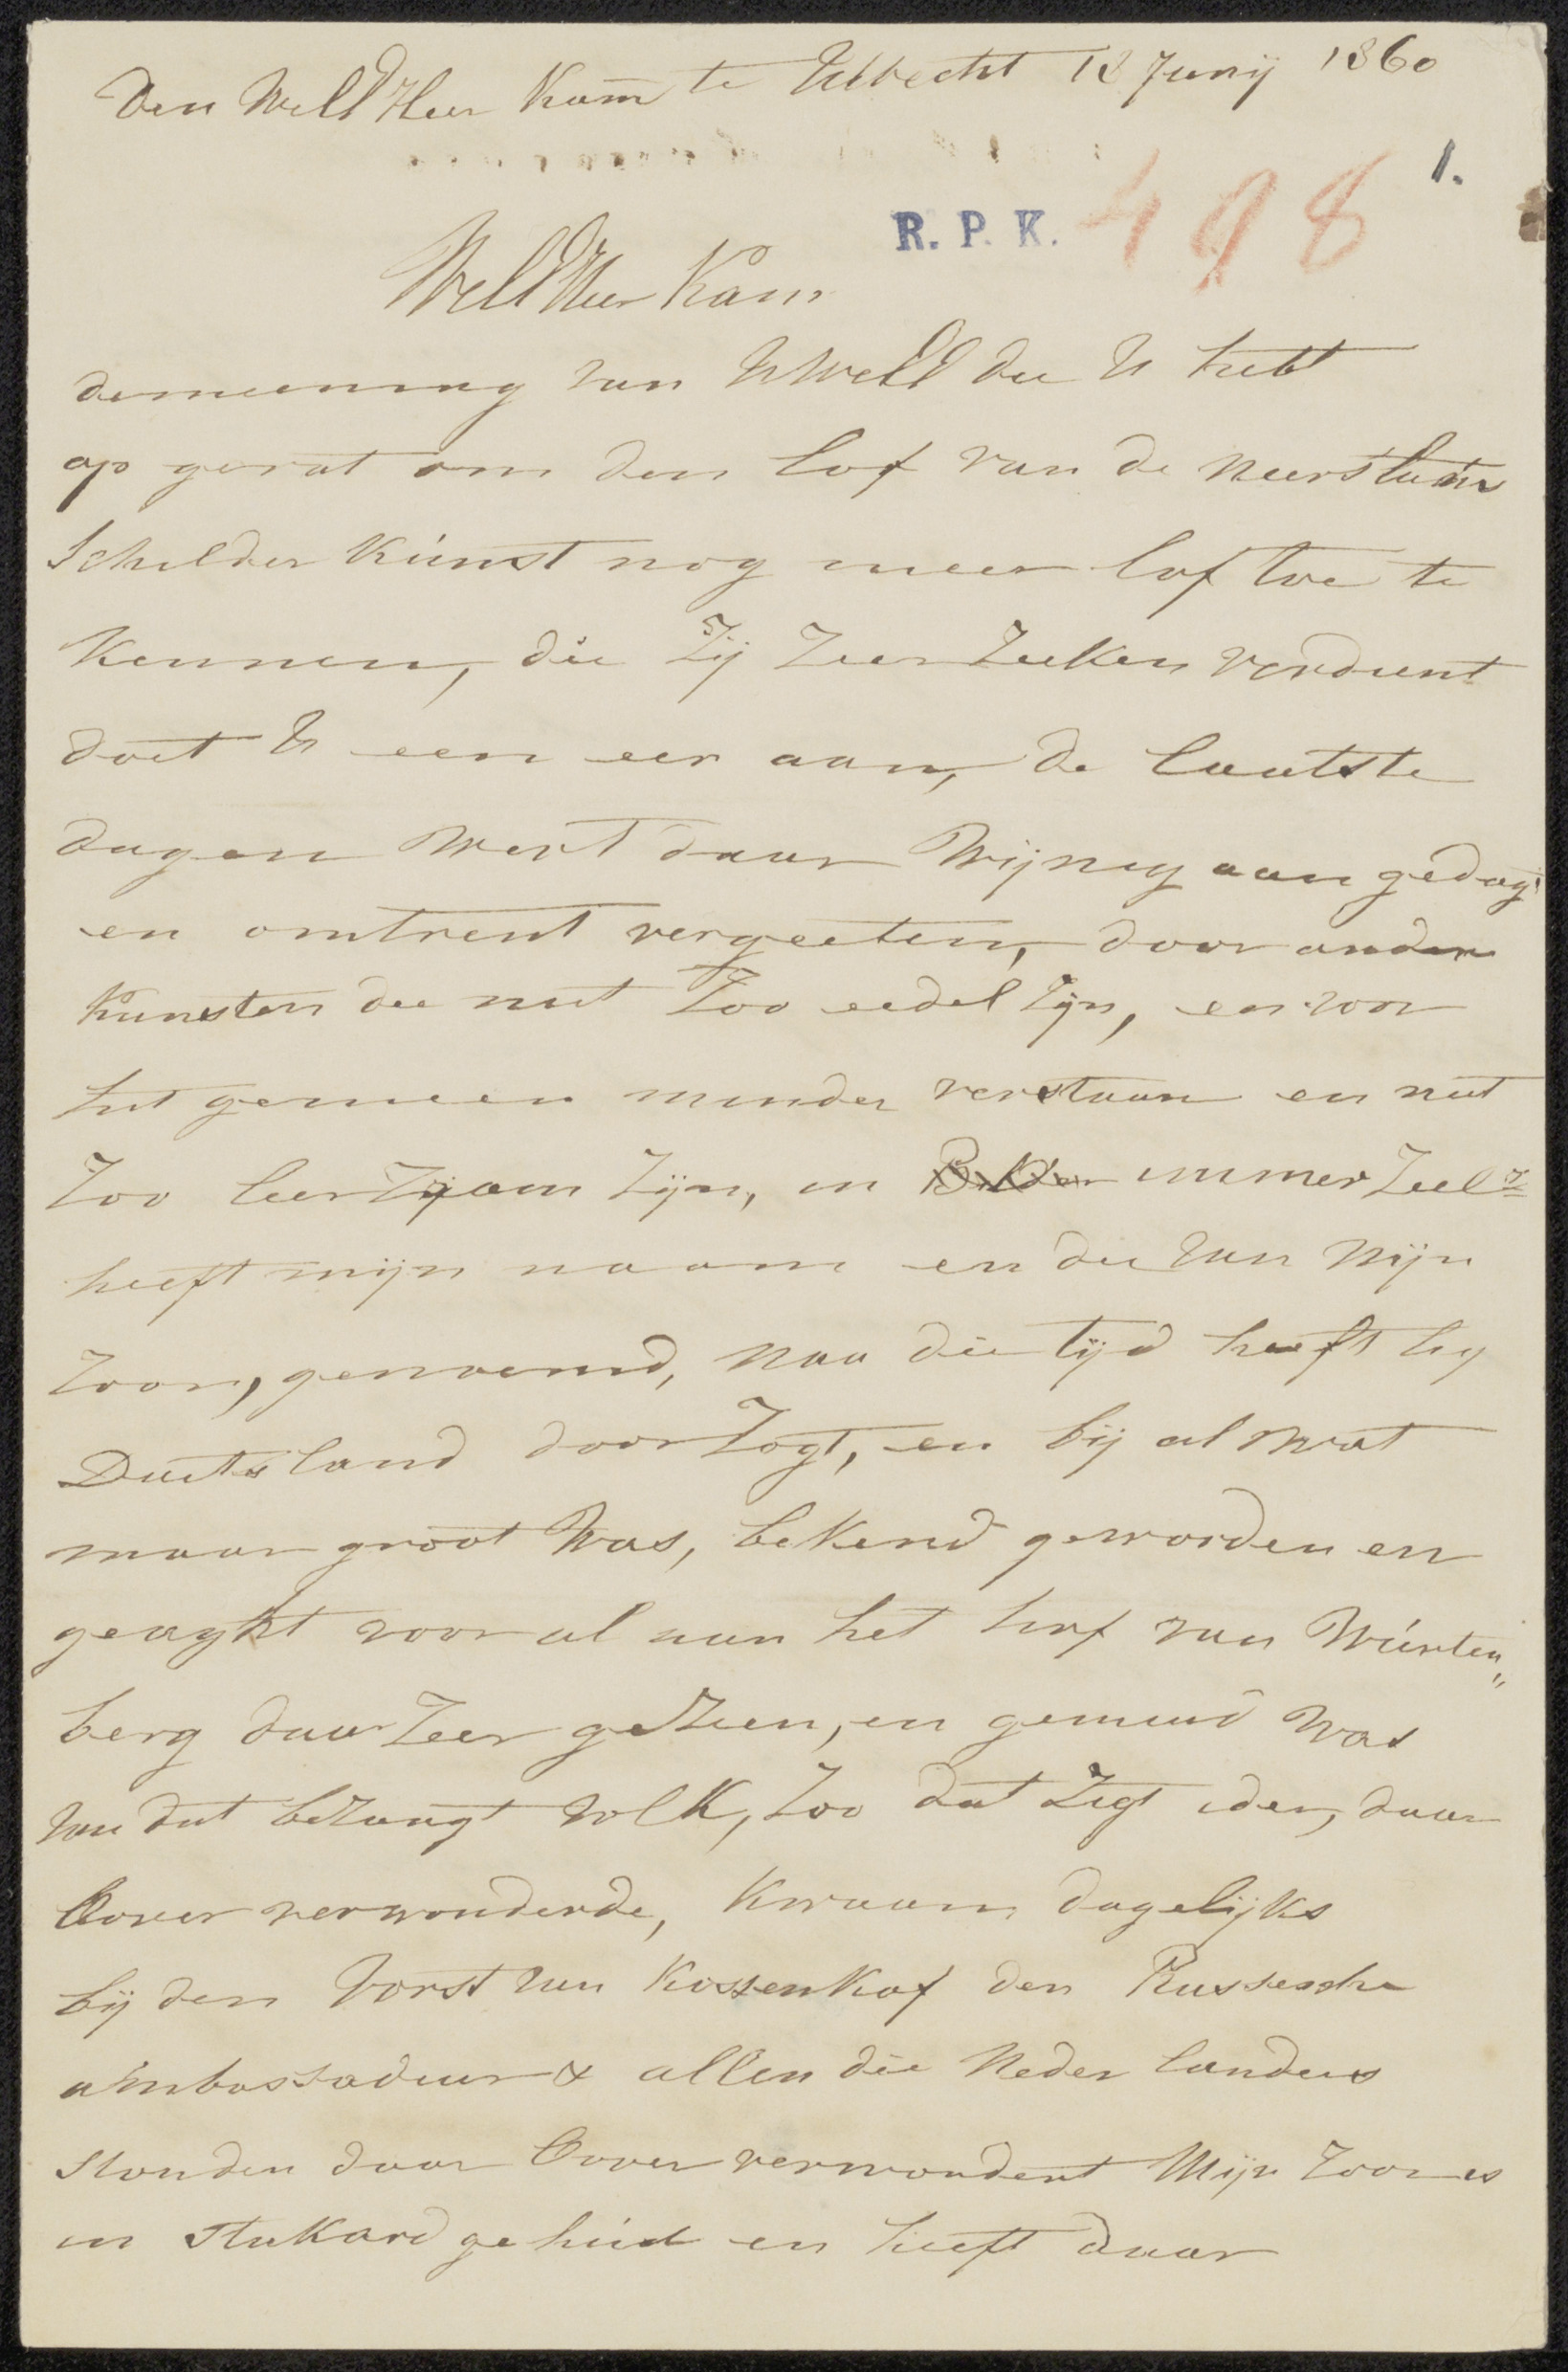 Den WelEd Heer Kam te Utrecht 13 Junij 1860
1.
R. P. K. 498
WelEd Heer Kam
de meening van UWelEd die U hebt
op gevat om den lof van de Neerslands
Schilder Kunst nog meer lof toe te
Kennen, die Zij Zeer Zeeker verdient
doet U een eer aan, de laatste
dagen wert daar Wijnig aan gedagt
en omtrent vergeeten, door ander
Kunsten die niet Zoo eedel Zijn, en voor
het gemeen minder verstaan en niet
Zoo leerzaam Zijn, in immerzeel
heeft mijn naam en die van Mijn
Zoon, genoemd, naa die tijd heeft hy
Duitsland door Zogt, en bij al wat
maar groot Was, bekend geworden en
geagt voor al aan het hof van Würten„
berg daar Zeer geZien, en gemind Was
van dat bezangt volk, Zoo dat Zegt ider, daar
Oover verwonderde, kwaam dagelijks
bij den Vorst van Kossenkof den Russesche
ambassaduur & allen die Neder landers
stonden daar Oover verwondert Mijn Zoon is
in Stukard gehuid en heeft daar